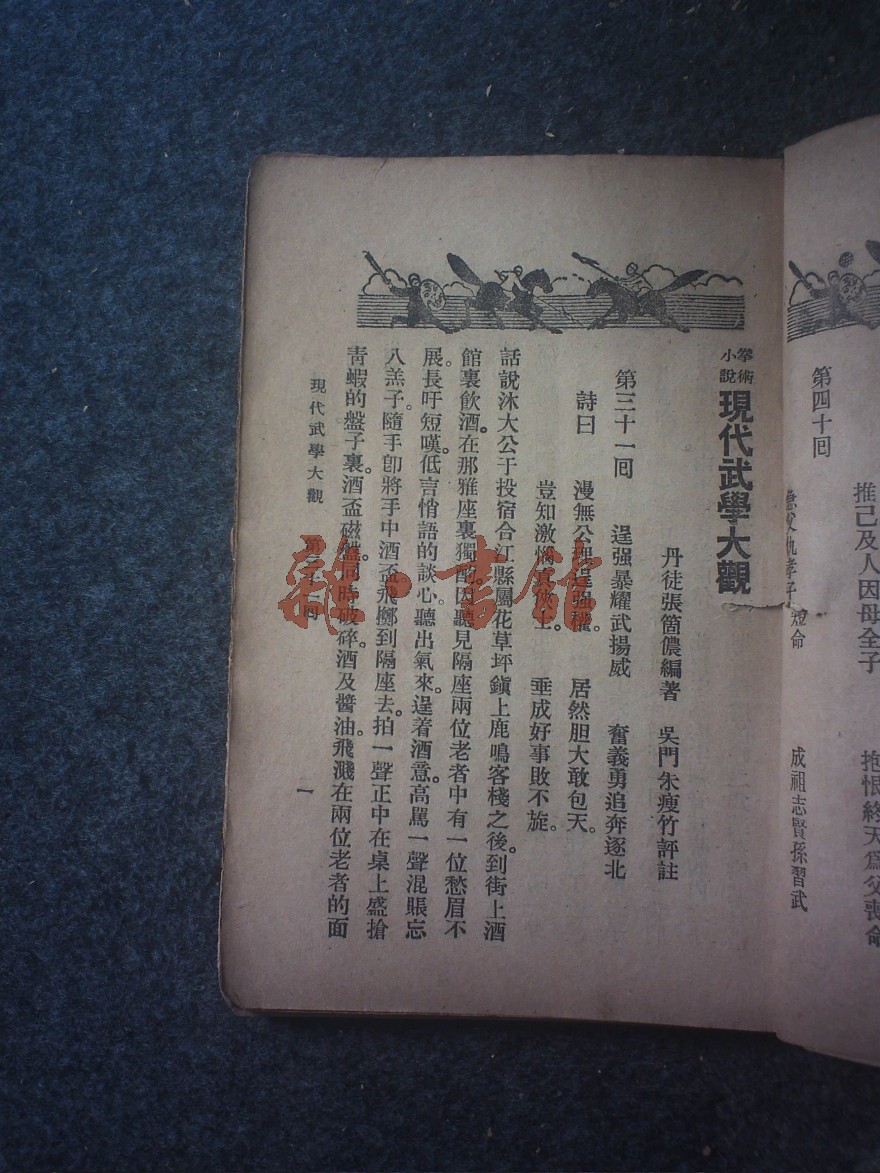 第四十回
推己及人因母全子
抱恨終天爲父喪命
短命
成祖志賢孫習武
拳術小說 現代武學大觀
丹徒張箇儂編著 吳門朱瘦竹評註
第三十一回 逞强暴耀武揚威 奮義勇追奔逐北
詩曰 漫無公理逞强權。 居然胆大敢包天。
豈知激惱 垂成好事敗不旋。
話說沐大公于投宿合江縣屬花草坪鎭上鹿鳴客棧之後。到街上酒
館裏飲酒。在那雅座裏獨酌。因聽見隔座兩位老者中有一位愁眉不
展。長吁短嘆。低言悄語的談心。聽出氣來。逞着酒意。高駡一聲混賬忘
八羔子。隨手卽將手中酒盃飛擲到隔座去。拍一聲正中在桌上盛搶
靑蝦的盤子裏。酒盃磁盤。同時破碎。酒及醬油。飛濺在兩位老者的面
現代武學大觀 第三十一回 一
雜·書館